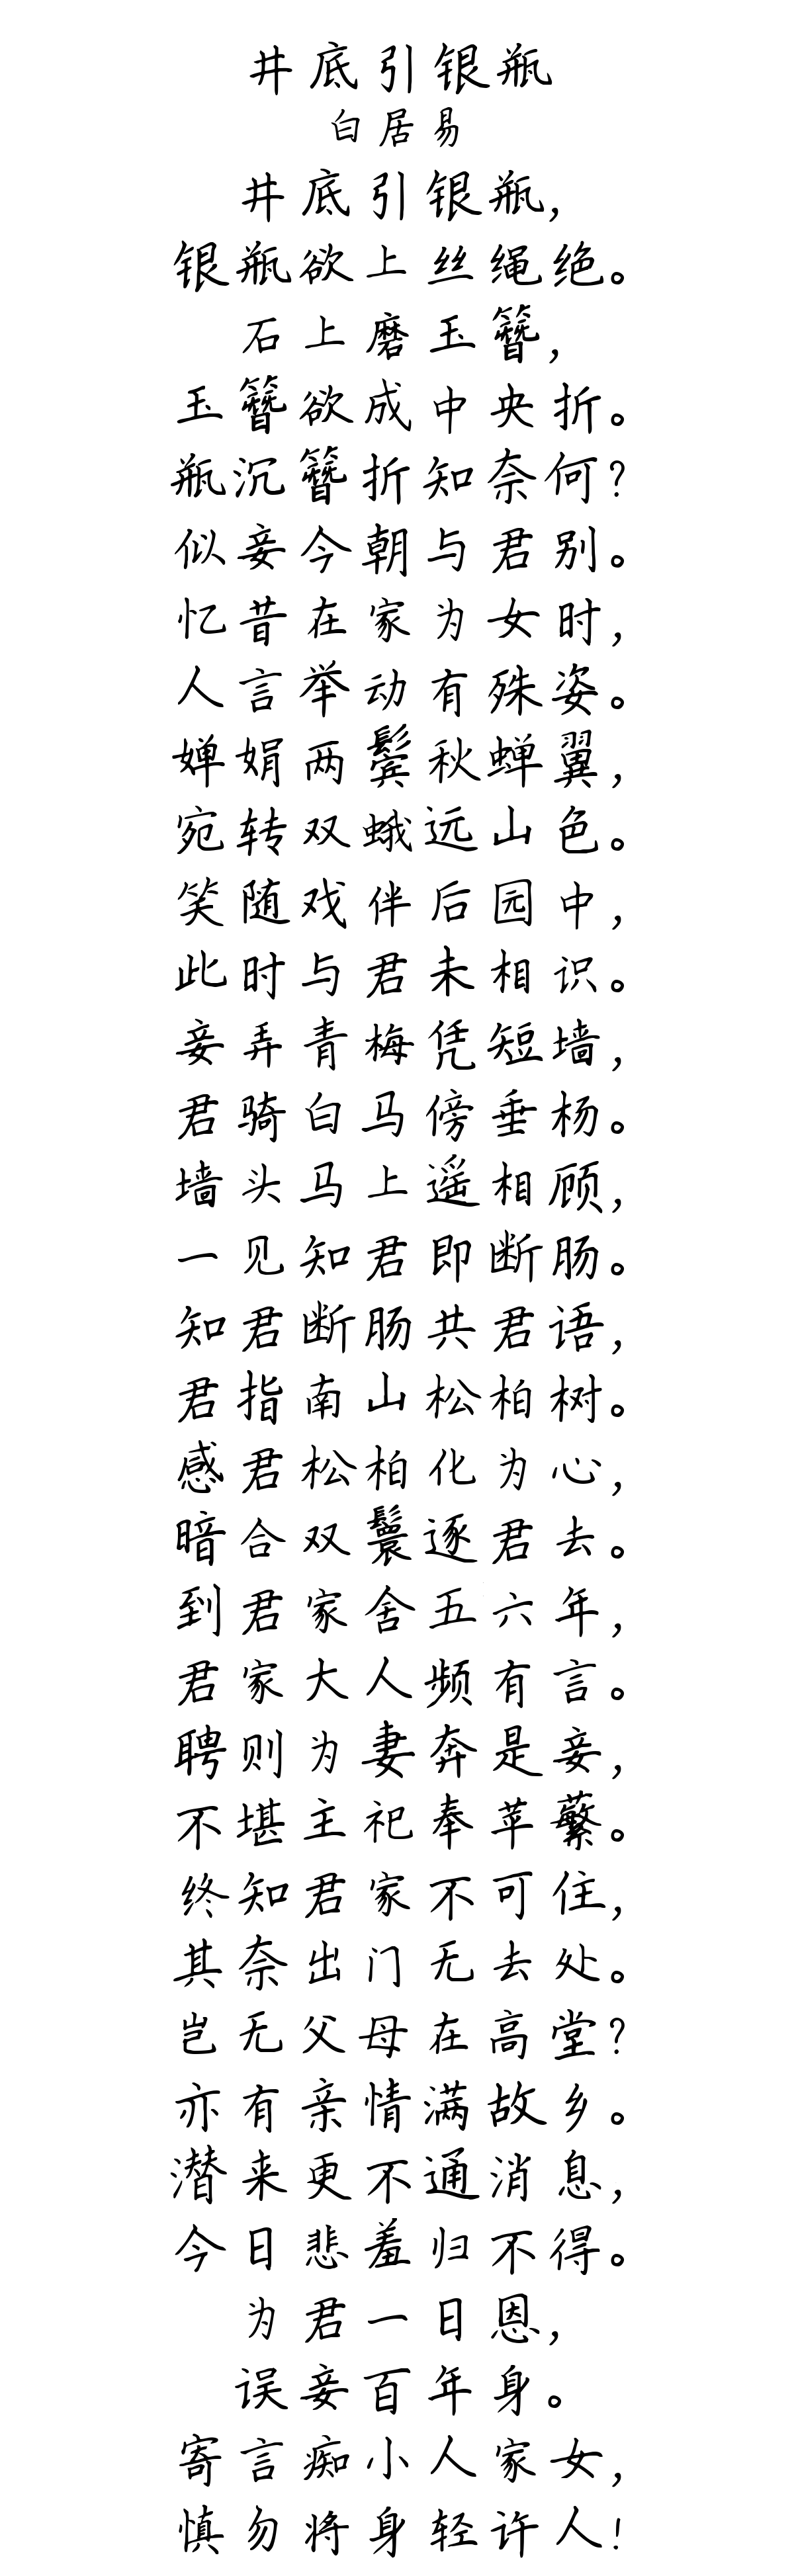 井底引银瓶
白居易
井底引银瓶，
银瓶欲上丝绳绝。
石上磨玉簪，
玉簪欲成中央折。
瓶沉簪折知奈何？
似妾今朝与君别。
忆昔在家为女时，
人言举动有殊姿。
婵娟两鬓秋蝉翼，
宛转双蛾远山色。
笑随戏伴后园中，
此时与君未相识。
妾弄青梅凭短墙，
君骑白马傍垂杨。
墙头马上遥相顾，
一见知君即断肠。
知君断肠共君语，
君指南山松柏树。
感君松柏化为心，
暗合双鬟逐君去。
到君家舍五六年，
君家大人频有言。
聘则为妻奔是妾，
不堪主祀奉苹蘩。
终知君家不可住，
其奈出门无去处。
岂无父母在高堂？
亦有亲情满故乡。
潜来更不通消息，
今日悲羞归不得。
为君一日恩，
误妾百年身。
寄言痴小人家女，
慎勿将身轻许人！